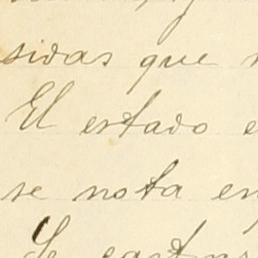 sidas que
El estado e
se nota en
Se